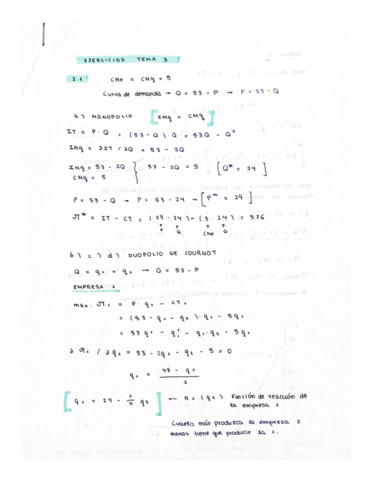 EJERCICIOS TEMA 3
3.1 CMe = CMg = 5
Curva de demanda → Q = 53 - P → P = 53 - Q
a) MONOPOLIO [IMg = CMg]
IT = P · Q = (53 - Q) · Q = 53Q - Q²
IMg = ∂IT / ∂Q = 53 - 2Q
IMg = 53 - 2Q } 53 - 2Q = 5 [Qᵐ = 24]
CMg = 5
P = 53 - Q → P = 53 - 24 → [Pᵐ = 29]
πᵐ = IT - CT = (29 · 24) - (5 · 24) = 576
P Q CMe Q
b) c) d) DUOPOLIO DE COURNOT
Q = q₁ + q₂ → Q = 53 - P
EMPRESA 1
max. π₁ = P · q₁ - CT₁
= (53 - q₁ - q₂) · q₁ - 5q₁
= 53q₁ - q₁² - q₁·q₂ - 5q₁
∂π₁ / ∂q₁ = 53 - 2q₁ - q₂ - 5 = 0
q₁ = 48 - q₂ / 2
[q₁ = 24 - 1/2 q₂] ← R₁(q₂) Función de reacción de
la empresa 1
Cuanto más produzca la empresa 2
menos tiene que producir la 1.